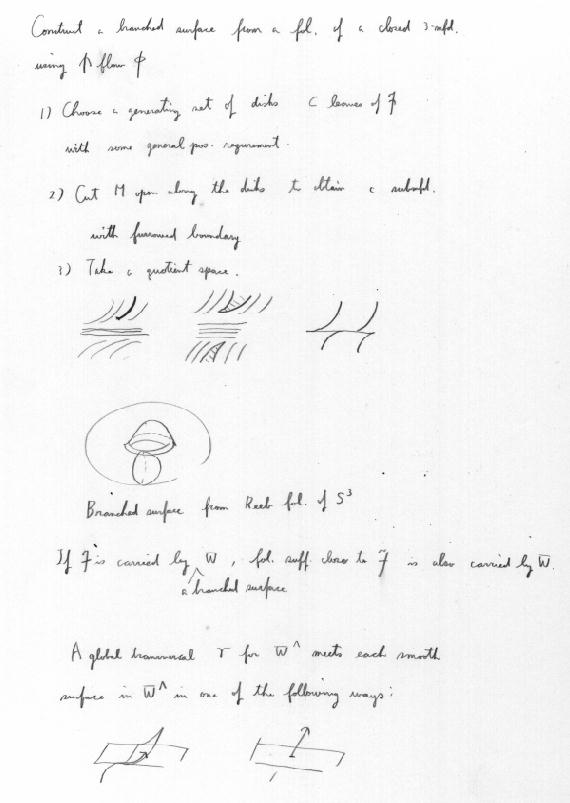 Construct a branched surface from a fol. of a closed 3-mfd.
using ⋔ flow ϕ
1) Choose a generating set of disks ⊂ leaves of F
with some general pos. requirement.
2) Cut M open along the disks to obtain a submfd.
with furrowed boundary
3) Take a quotient space.
Branched surface from Reeb fol. of S³
If F is carried by W, fol. suff. close to F is also carried by W.
a branched surface
A global transversal τ for W^ meets each smooth
surface in W^ in one of the following ways: